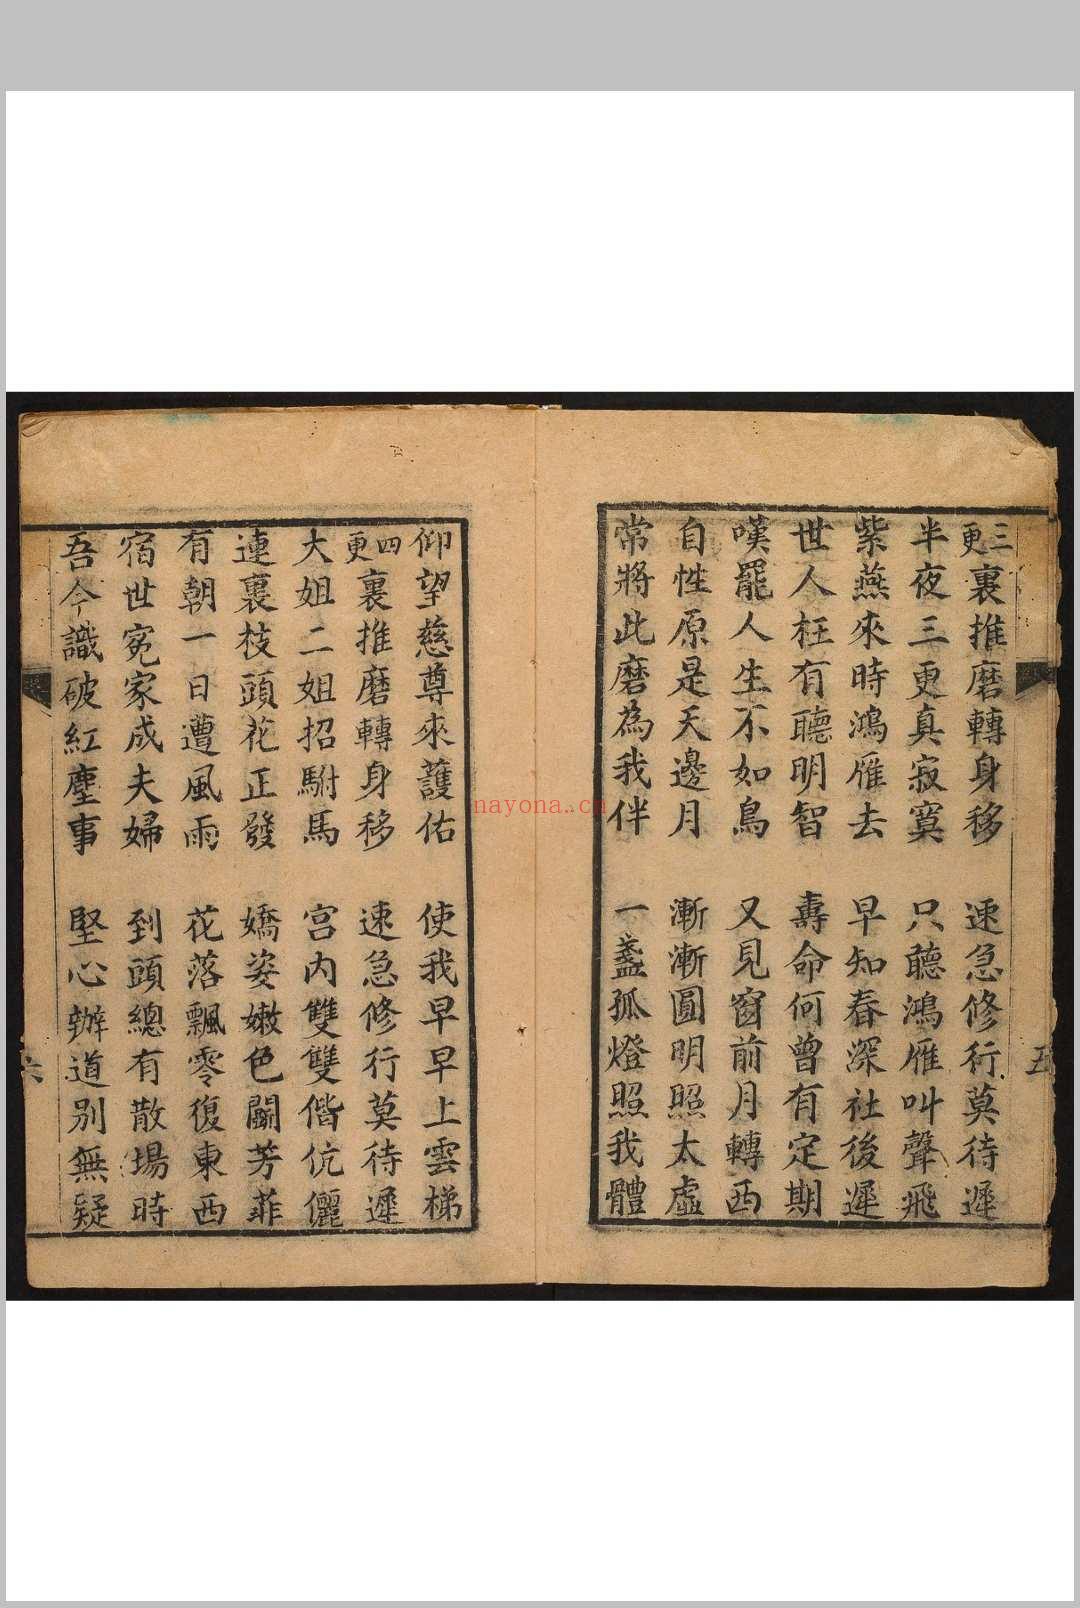 三更裏推磨轉身移　速急修行莫待遲
半夜三更真寂寞　只聽鴻雁叫聲飛
紫燕來時鴻雁去　早知春深社後遲
世人枉有聽明智　壽命何曾有定期
嘆罷人生不如鳥　又見窗前月轉西
自性原是天邊月　漸漸圓明照太虛
常將此磨為我伴　一盞孤燈照我體
五
仰望慈尊來護佑　使我早早上雲梯
四更裏推磨轉身移　速急修行莫待遲
大姐二姐招駙馬　宮內雙雙偕伉儷
連裏枝頭花正發　嬌姿嫩色鬬芳菲
有朝一日遭風雨　花落飄零復東西
宿世冤家成夫婦　到頭總有散場時
吾今識破紅塵事　堅心辦道別無疑
六
nayona.cn